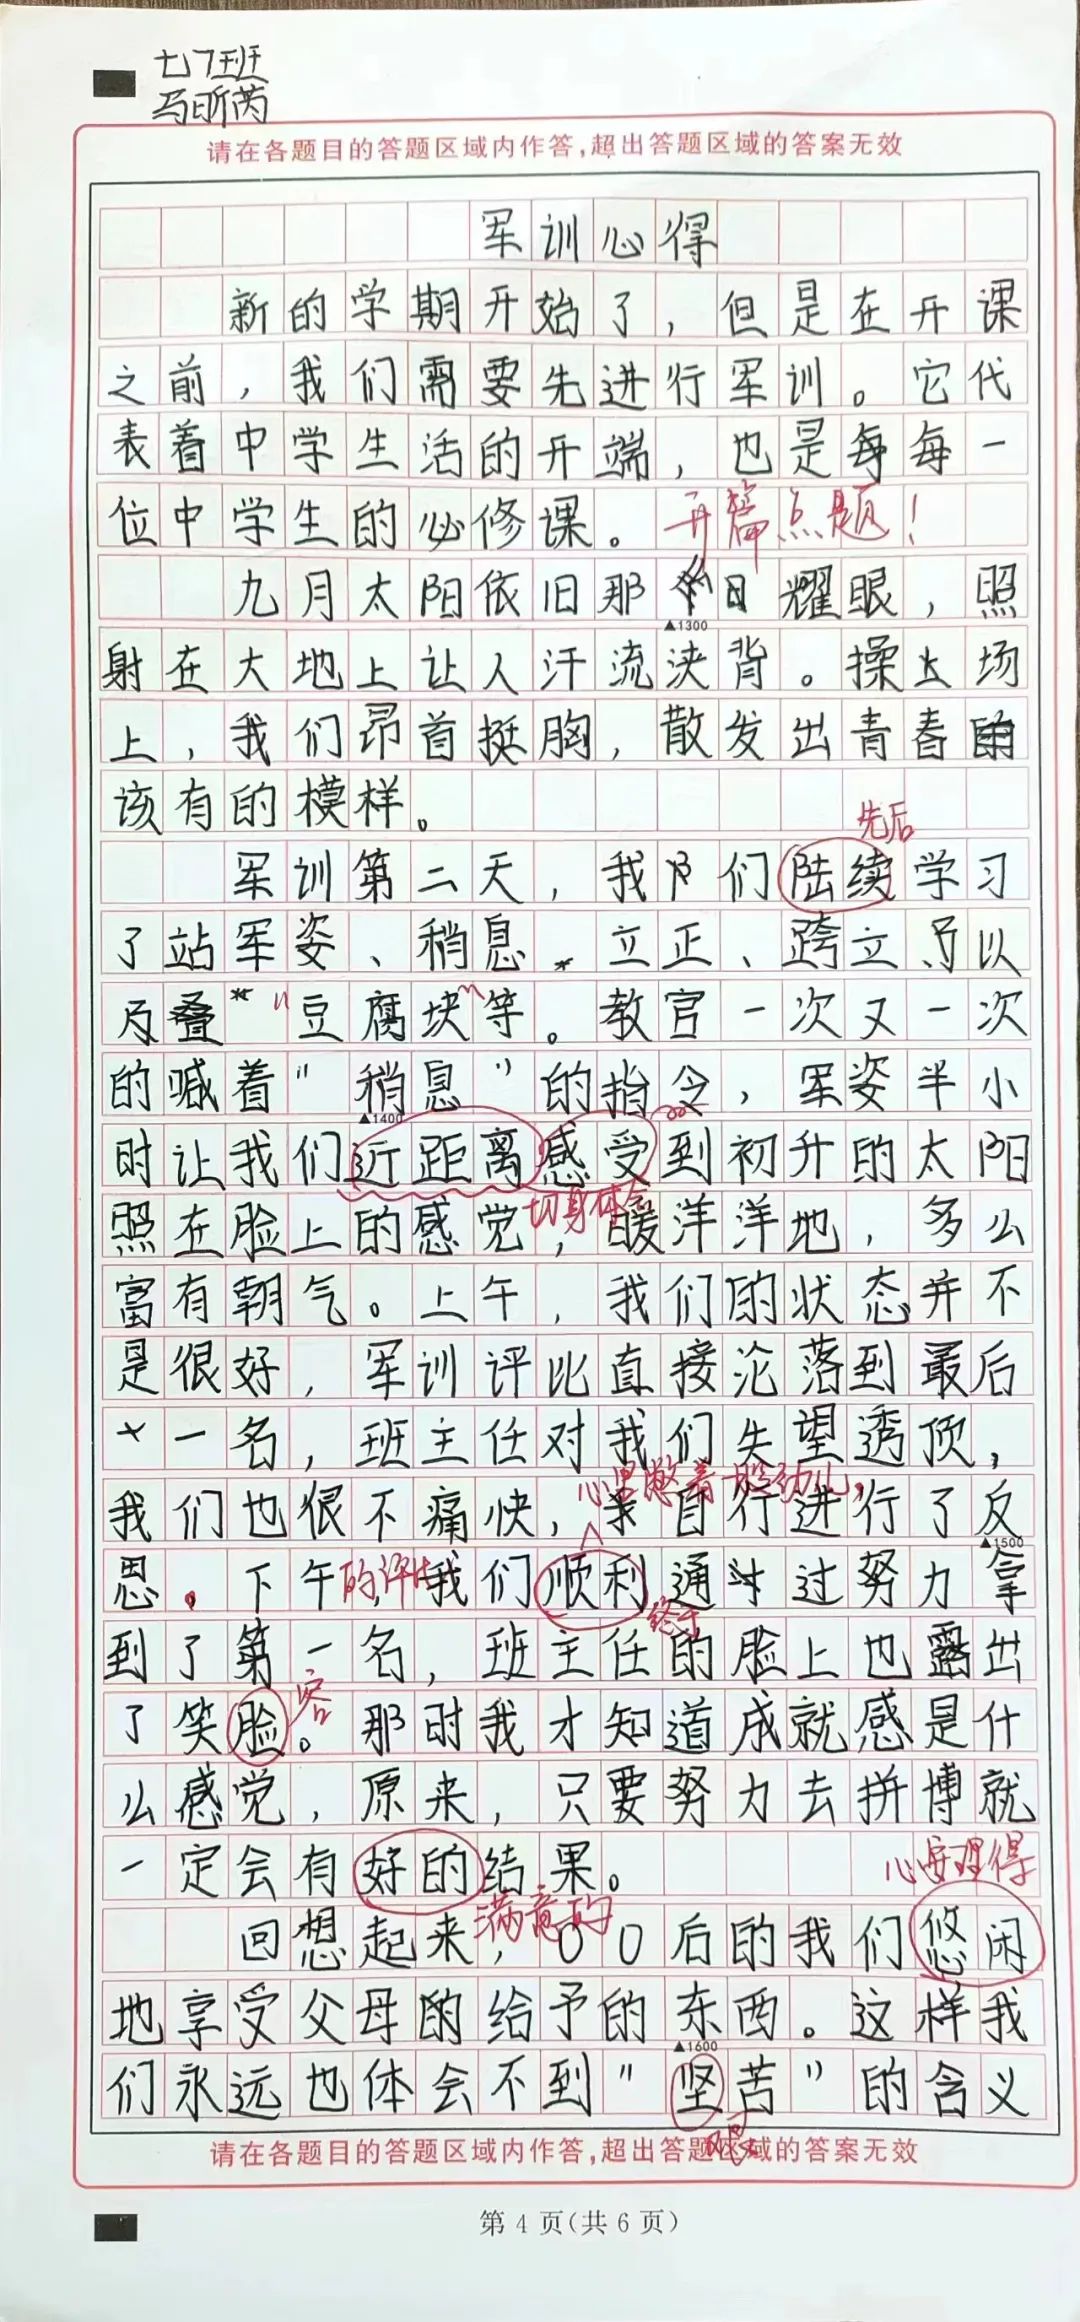 七7班
马昕芮
请在各题目的答题区域内作答,超出答题区域的答案无效
军训心得
新的学期开始了，但是在开课
之前，我们需要先进行军训。它代
表着中学生活的开端，也是每每一
位中学生的必修课。开篇点题！
九月太阳依旧那日耀眼，照
▲1300
射在大地上让人汗流浃背。操场
上，我们昂首挺胸，散发出青春
该有的模样。
先后
军训第二天，我们陆续学习
了站军姿、稍息、立正、跨立以
及叠"豆腐块"等。教官一次又一次
的喊着"稍息"的指令，军姿半小
▲1400
时让我们近距离感受到初升的太阳
切身体会
照在脸上的感觉，暖洋洋地，多么
富有朝气。上午，我们的状态并不
是很好，军训评比直接沦落到最后
十一名，班主任对我们失望透顶，
心里憋着一股劲儿，
我们也很不痛快，自行进行了反
▲1500
思。下午的评比，我们顺利通过努力拿
终于
到了第一名，班主任的脸上也露出
容
了笑脸。那时我才知道成就感是什
么感觉，原来，只要努力去拼博就
一定会有好的结果。
心安理得
满意的
回想起来，00后的我们悠闲
地享受父母的给予的东西。这样我
▲1600
们永远也体会不到"坚苦"的含义
艰
请在各题目的答题区域内作答,超出答题区域的答案无效
第4页(共6页)